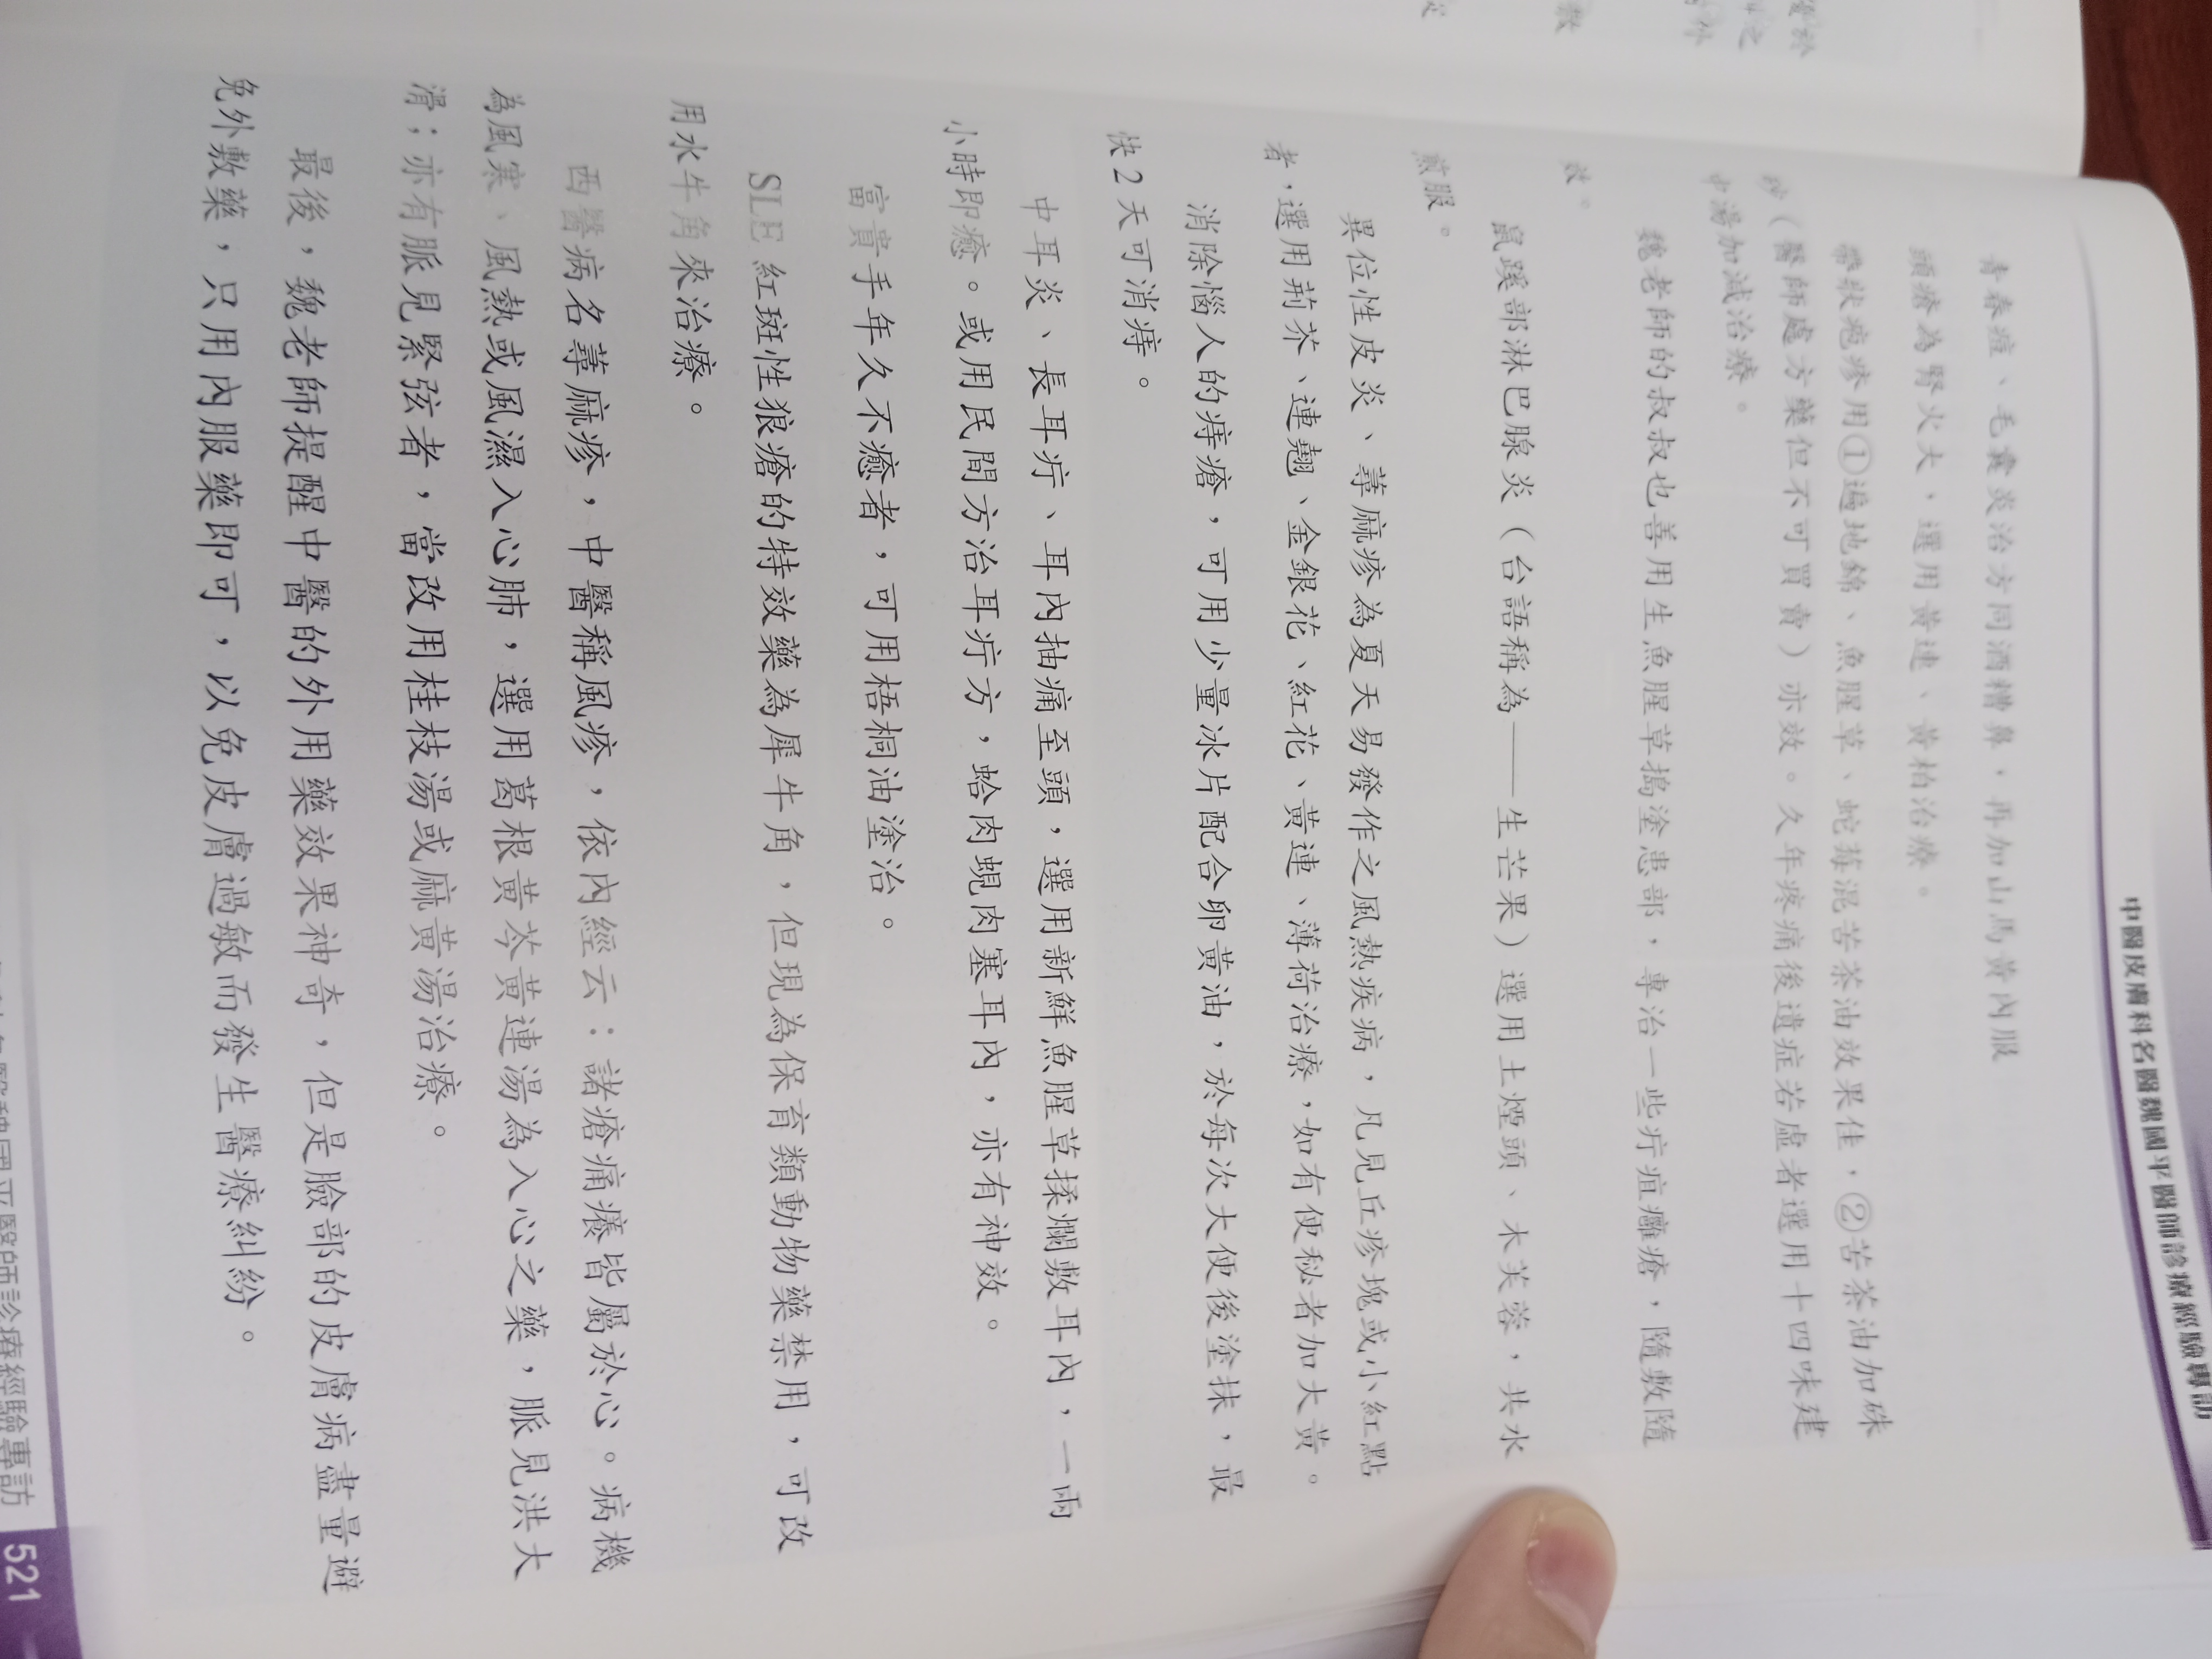 中醫皮膚科名醫魏國平醫師診療經驗專訪
青春痘、毛囊炎治方同酒糟鼻，再加山馬黃內服
頭瘡為腎火大，選用黃連、黃柏治療。
帶狀疱疹用①遍地錦、魚腥草、蛇莓混苦茶油效果佳，②苦茶油加硃
砂（醫師處方藥但不可買賣）亦效。久年疼痛後遺症若虛者選用十四味建
中湯加減治療。
魏老師的叔叔也善用生魚腥草搗塗患部，專治一些疔疽癰瘡，隨敷隨
效。
鼠蹊部淋巴腺炎（台語稱為——生芒果）選用土煙頭、木芙蓉，共水
煎服。
異位性皮炎、蕁麻疹為夏天易發作之風熱疾病，凡見丘疹塊或小紅點
者，選用荊芥、連翹、金銀花、紅花、黃連、薄荷治療，如有便秘者加大黃。
消除惱人的痔瘡，可用少量冰片配合卵黃油，於每次大便後塗抹，最
快2天可消痔。
中耳炎、長耳疔、耳內抽痛至頭，選用新鮮魚腥草揉爛敷耳內，一兩
小時即癒。或用民間方治耳疔方，蛤肉蜆肉塞耳內，亦有神效。
富貴手年久不癒者，可用梧桐油塗治。
SLE紅斑性狼瘡的特效藥為犀牛角，但現為保育類動物藥禁用，可改
用水牛角來治療。
西醫病名蕁麻疹，中醫稱風疹，依內經云：諸瘡痛癢皆屬於心。病機
為風寒、風熱或風濕入心肺，選用葛根黃芩黃連湯為入心之藥，脈見洪大
滑；亦有脈見緊弦者，當改用桂枝湯或麻黃湯治療。
最後，魏老師提醒中醫的外用藥效果神奇，但是臉部的皮膚病盡量避
免外敷藥，只用內服藥即可，以免皮膚過敏而發生醫療糾紛。
醫師診療經驗專訪
521